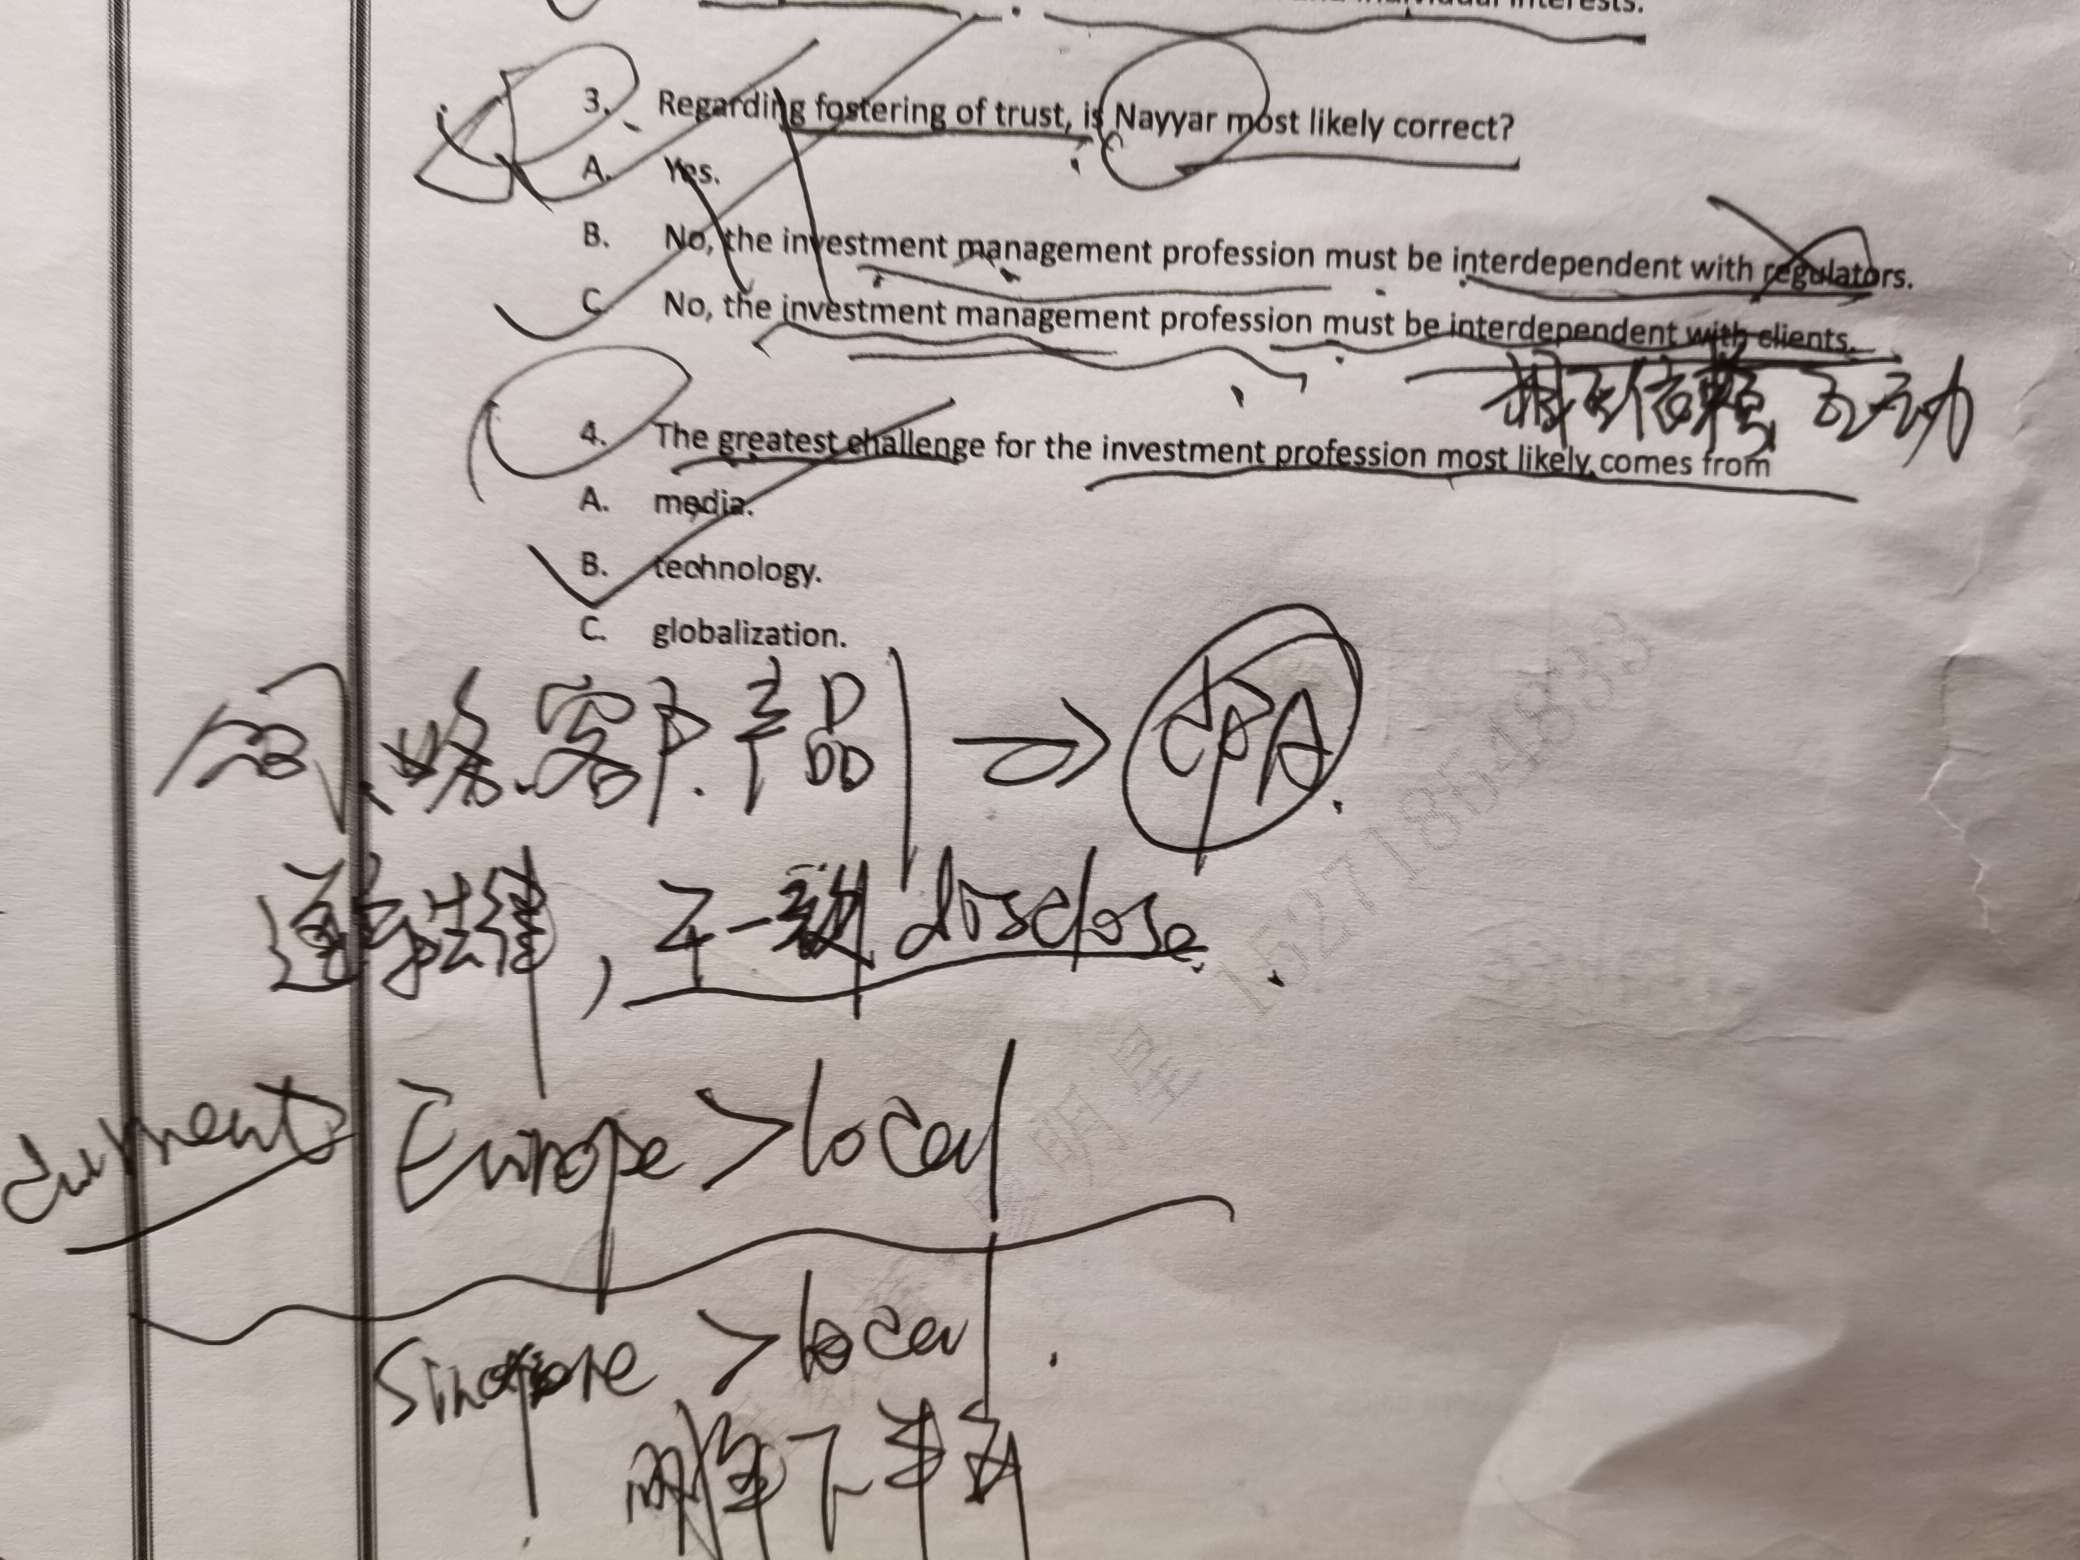 3. Regarding fostering of trust, is Nayyar most likely correct?
A. Yes.
B. No, the investment management profession must be interdependent with regulators.
C. No, the investment management profession must be interdependent with clients.
相互信赖 互动
4. The greatest challenge for the investment profession most likely comes from
A. media.
B. technology.
C. globalization.
客户.产品
遵守法律, 不一致 disclose.
Europe > local
> local.
明年下半年
15271854833
明星